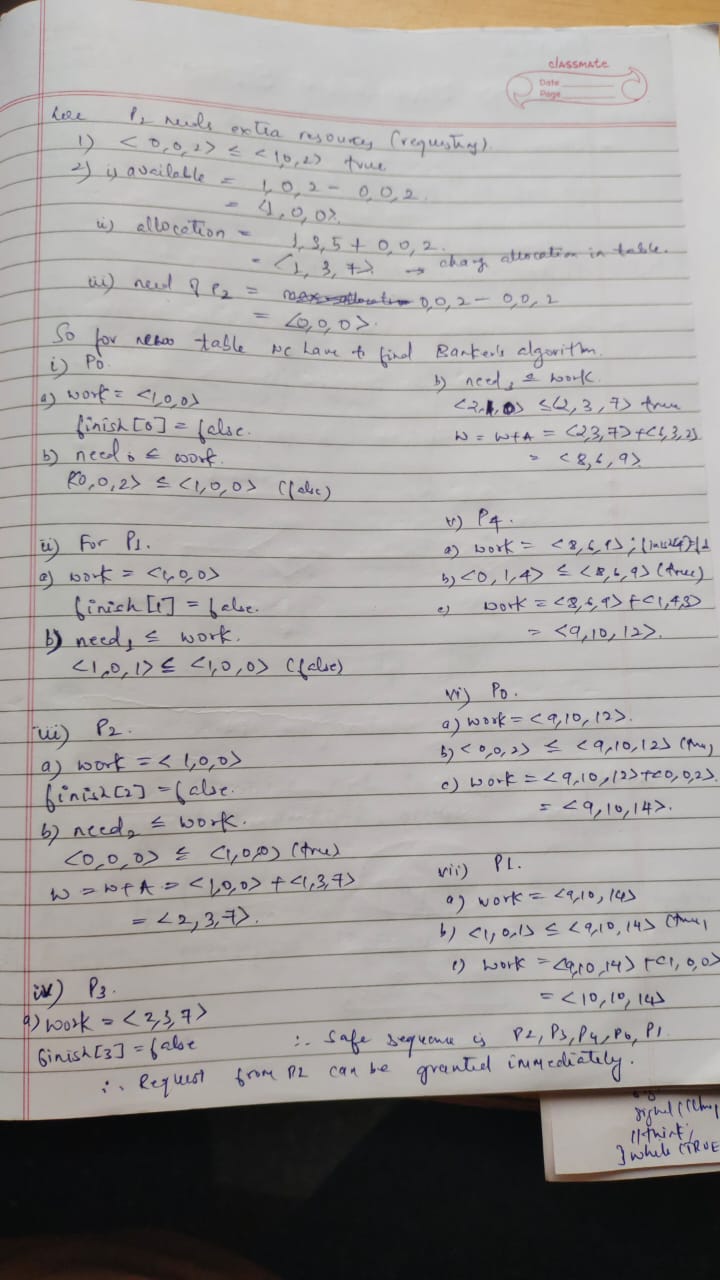 classmate
Date
Page
here P2 needs extra resources (requesting).
1) < 0,0,2> ≤ <1,0,2> true
2) i) available = 1,0,2 - 0,0,2
= <1,0,0>.
ii) allocation = 1,3,5 + 0,0,2.
= <1,3,7> → change allocation in table.
iii) need of P2 = 0,0,2 - 0,0,2
= <0,0,0>.
So for table we have to find Banker's algorithm.
i) P0.
a) work = <1,0,0>
finish[0] = false.
b) need0 ≤ work.
<0,0,2> ≤ <1,0,0> (false)
ii) For P1.
a) work = <1,0,0>
finish[1] = false.
b) need1 ≤ work.
<1,0,1> ≤ <1,0,0> (false)
iii) P2.
a) work = <1,0,0>
finish[2] = false.
b) need2 ≤ work.
<0,0,0> ≤ <1,0,0> (true)
W = W+A = <1,0,0> + <1,3,7>
= <2,3,7>.
iv) P3.
a) work = <2,3,7>
finish[3] = false
b) need3 ≤ work.
<2,1,0> ≤ <2,3,7> true
W = W+A = <2,3,7> + <6,3,2>
= <8,6,9>
v) P4.
a) work = <8,6,9>;
b) <0,1,4> ≤ <8,6,9> (true)
c) work = <8,6,9> + <1,4,3>
= <9,10,12>.
vi) P0.
a) work = <9,10,12>.
b) <0,0,2> ≤ <9,10,12>
c) work = <9,10,12> + <0,0,2>.
= <9,10,14>.
vii) P1.
a) work = <9,10,14>
b) <1,0,1> ≤ <9,10,14>
c) work = <9,10,14> + <1,0,0>
= <10,10,14>
∴ Safe sequence is P2, P3, P4, P0, P1.
∴ Request from P2 can be granted immediately.
signal
//think;
} while (TRUE